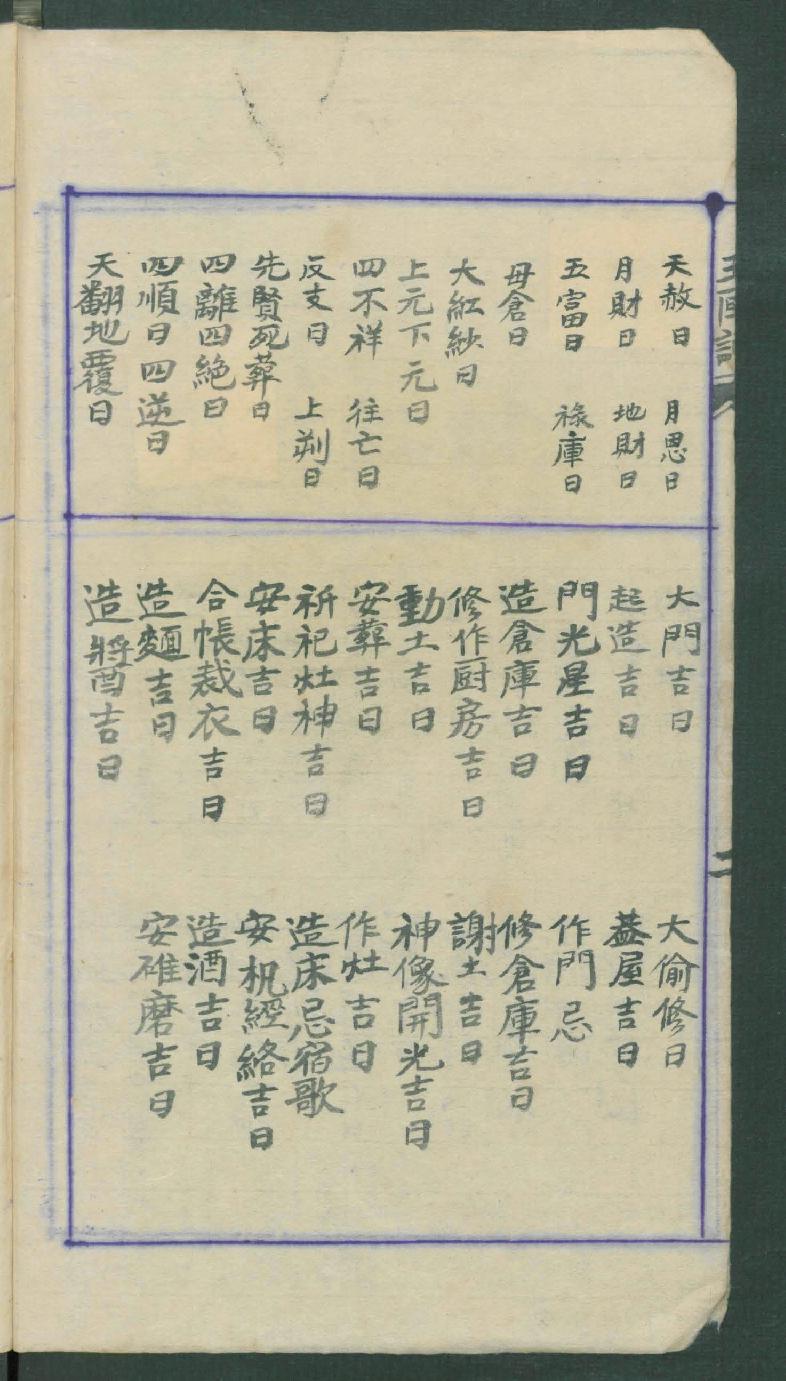 天赦日 月恩日
月財日 地財日
五富日 祿庫日
母倉日
大紅紗日
上元下元日
四不祥 往亡日
反支日 上朔日
先賢死葬日
四離四絶日
四順日四逆日
天翻地覆日
大門吉日 大偷修日
起造吉日 蓋屋吉日
門光星吉日 作門忌
造倉庫吉日 修倉庫吉日
修作厨房吉日 謝土吉日
動土吉日 神像開光吉日
安葬吉日 作灶吉日
祈祀灶神吉日 造床忌宿歌
安床吉日 安机經絡吉日
合帳裁衣吉日 造酒吉日
造麵吉日 安碓磨吉日
造醬吉日
二